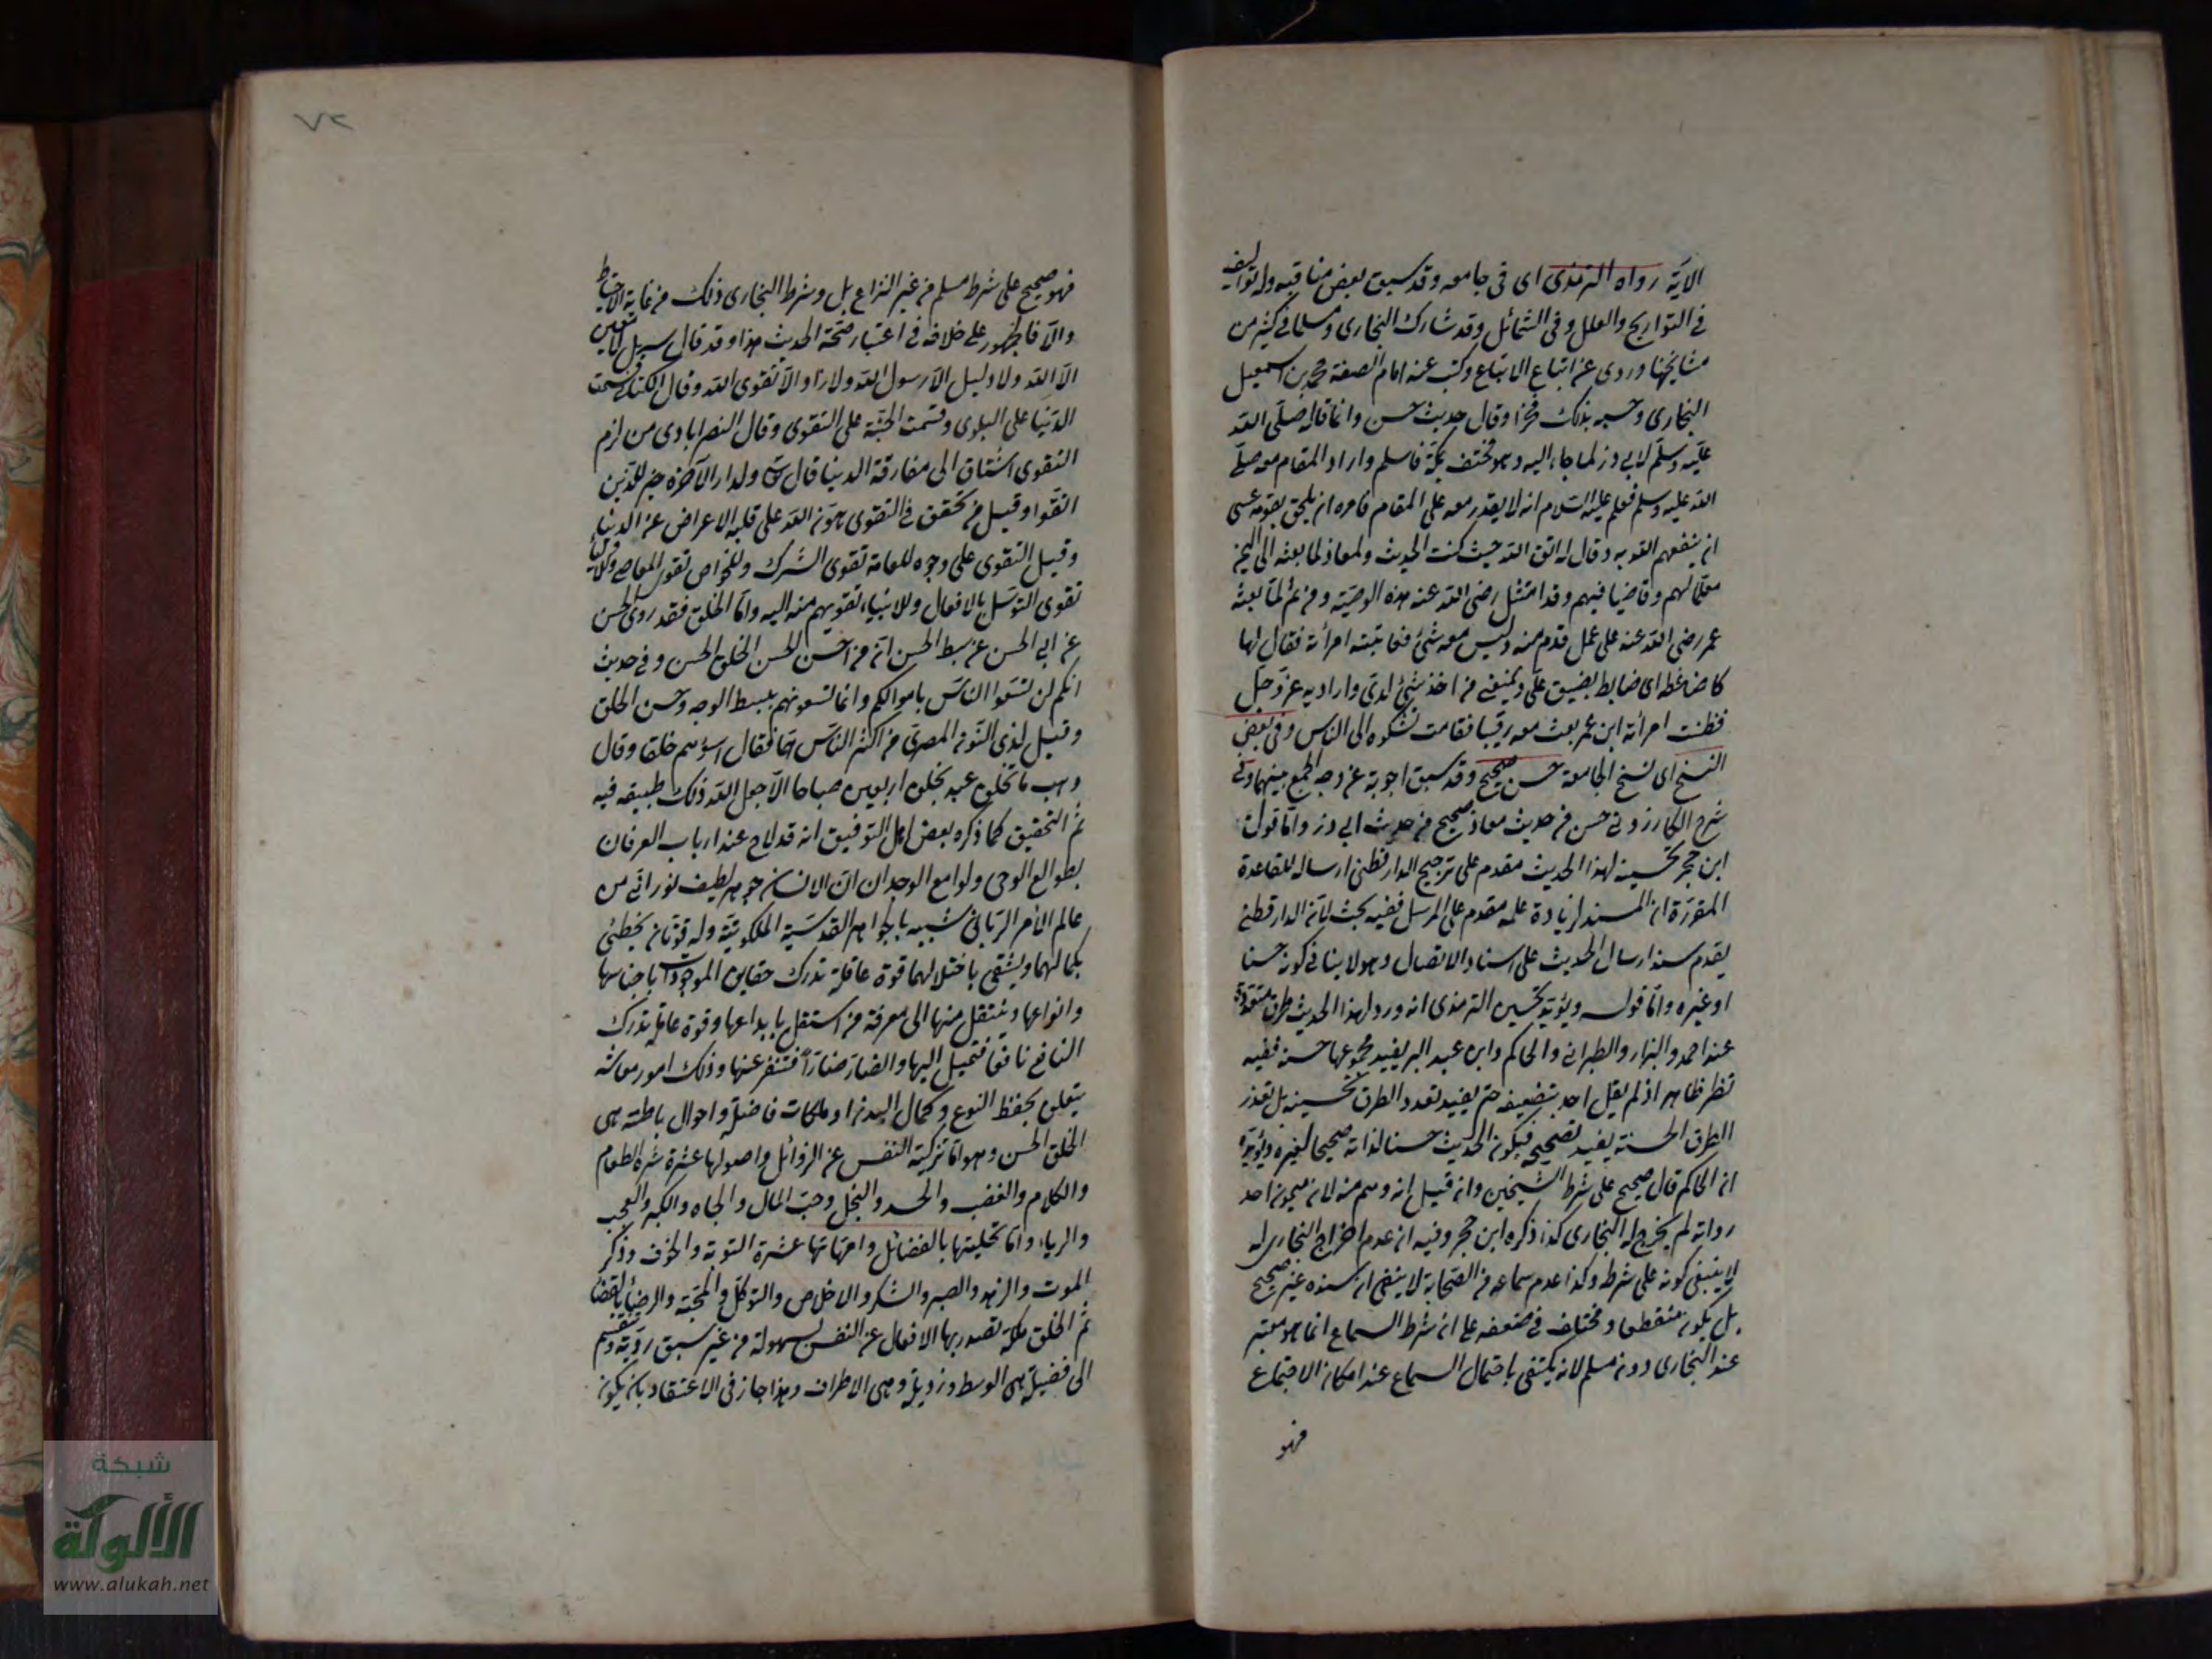 الآية رواه الترمذي اى فى جامعه وقد سبق بعض مناقبه وله تواليف
فى التواريخ والعلل وفى الشمائل وقد شارك البخارى ومسلما فى كثير من
مشايخهما وروى عن اتباع الاتباع وكتب عنه امام الصنعة محمد بن اسمعيل
البخارى وحسبه بذلك فخرا وقال حديث حسن وانما قاله صلى الله
عليه وسلم لابى ذر لما جاء اليه وهو مختف بمكة فاسلم واراد المقام معه صلى
الله عليه وسلم فعلم عليه السلام انه لا يقدر معه على المقام فامره ان يلحق بقومه عسى
ان ينفعهم الله به وقال له اتق الله حيث كنت الحديث ولمعاذ لما بعثه الى اليمن
معلما لهم وقاضيا فيهم وقد امتثل رضى الله عنه هذه الوصية ومن ثم لما بعثه
عمر رضى الله عنه على عمل قدم منه وليس معه شئ فعاتبته امرأته فقال لها
كا ضاغط اى ضابط يضيق على ويمنعنى من اخذ شئ لدى واراد به عز وجل
فظنت امرأته ان عمر بعث معه رقيبا فقامت تشكوه الى الناس وفى بعض
النسخ اى نسخ الجامعة حسن صحيح وقد سبق اجوبة عن وجه الجمع بينهما وفى
شرح الكازرونى حسن من حديث معاذ صحيح من حديث ابى ذر واما قول
ابن حجر تحسينه لهذا الحديث مقدم على ترجيح الدارقطنى ارساله للقاعدة
المقررة ان المسند لزيادة علمه مقدم على المرسل ففيه بحث لأن الدارقطنى
يقدم سند ارسال الحديث على اسناد الاتصال وهو لا ينافى كونه حسنا
او غيره واما قوله ويؤيد تحسين الترمذى انه ورد لهذا الحديث طرق متعددة
عند احمد والبزار والطبرانى والحاكم وابن عبد البر يفيد مجموعها حسنه ففيه
نظر ظاهر اذ لم يقل احد بتضعيفه حتى يفيد تعدد الطرق تحسينه بل تعدد
الطرق الحسنة يفيد تصحيحه فيكون الحديث حسنا لذاته صحيحا لغيره ويؤيده
ان الحاكم قال صحيح على شرط الشيخين وان قيل انه وهم منه لان ميمون احد
رواته لم يخرج له البخارى كذا ذكره ابن حجر وفيه ان عدم اخراج البخارى له
لا ينبغى كونه على شرطه وكذا عدم سماعه من الصحابة لا ينفى ان سنده غير صحيح
بل يكون منقطعا ومختلف فى ضعفه على ان شرط السماع انما هو معتبر
عند البخارى دون مسلم لانه يكتفى باحتمال السماع عند امكان الاجتماع
فهو
٧٢
فهو صحيح على شرط مسلم من غير النزاع بل وشرط البخارى ذلك من غاية الاحتياط
والا فالجمهور على خلافه فى اعتبار صحة الحديث هذا وقد قال سهيل لا معين
الا الله ولا دليل الا رسول الله ولا زاد الا تقوى الله وقال الكتانى قسمت
الدنيا على البلوى وقسمت الجنة على التقوى وقال النصرابادى من لزم
التقوى اشتاق الى مفارقة الدنيا قال تعالى ولدار الآخرة خير للذين
اتقوا وقيل من تحقق فى التقوى هون الله على قلبه الاعراض عن الدنيا
وقيل التقوى على وجوه للعامة تقوى الشرك وللخواص تقوى المعاصى وللأولياء
تقوى التوسل بالافعال وللانبياء تقويهم منه اليه واما الخلق فقد روى الحسن
عن ابى الحسن عن سبط الحسن ان من احسن الحسن الخلق الحسن وفى حديث
انكم لن تسعوا الناس باموالكم وانما تسعونهم ببسط الوجه وحسن الخلق
وقيل لذى النون المصرى من اكثر الناس هما فقال اسوءهم خلقا وقال
وهب ما تخلق عبد بخلق اربعين صباحا الا جعل الله ذلك طبيعة فيه
ثم التحقيق كما ذكره بعض اهل التوفيق انه قد لاح عند ارباب العرفان
بطوالع الوحى ولوامع الوجدان ان الانسان جوهر لطيف نورانى من
عالم الأمر الربانى شبيه بالجواهر القدسية الملكوتية وله قوتان يحظى
بكمالهما ويشقى باختلالهما قوة عاقلة تدرك حقايق الموجودات باجناسها
وانواعها وينتقل منها الى معرفة من استقل بابداعها وقوة عاملة تدرك
النافع نافعا فتميل اليها والضار ضارا فتنفر عنها وذلك امور معاشه
يتعلق بحفظ النوع وكمال البدن او ملكات فاضلة واحوال باطنة هى
الخلق الحسن وهو اما تزكية النفس عن الرذائل واصولها عشرة شره الطعام
والكلام والغضب والحسد والبخل وحب المال والجاه والكبر والعجب
والرياء واما تحليتها بالفضائل وامهاتها عشرة التوبة والخوف وذكر
الموت والزهد والصبر والشكر والاخلاص والتوكل والمحبة والرضى بالقضا
ثم الخلق ملكة تصدر بها الافعال عن النفس بسهولة من غير سبق روية وتنقسم
الى فضيلة هى الوسط ورذيلة وهى الاطراف وهذا جاز فى الاعتقاد بان يكون
شبكة
الألوكة
www.alukah.net